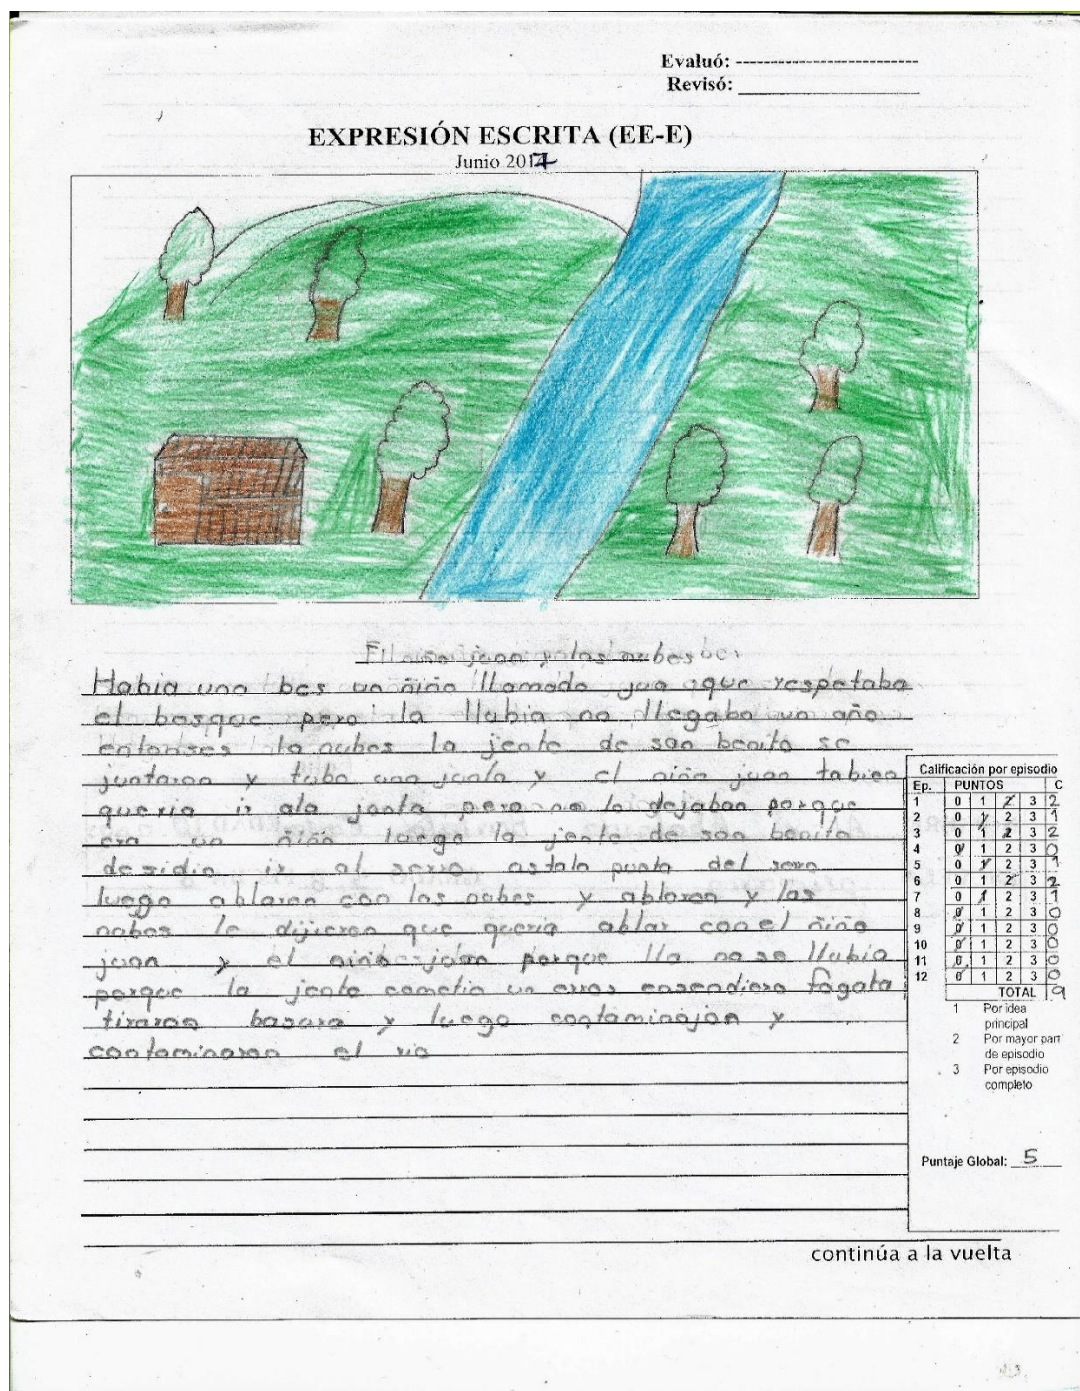 Evaluó: --------------------------
Revisó: ____________________
EXPRESIÓN ESCRITA (EE-E)
Junio 2017
El niño juan y las nubes
Habia una bes un ñiño llamado jua que respetaba
el bosque pero la llubia no llegaba un año
entonses la nubes la jente de san benito se
juntaron y tubo una junta y el niño juan tabien
queria ir ala junta pero no lo dejaban porque
era un ñiño luego la jente de san benito
desidio ir al serro astala punta del sero
luego ablaron con las nubes y ablaron y las
nubes le dijieron que queria ablar con el ñiño
juan y el niño juan porque lla no so llubia
porque la jente cometio un error ensendiero fogata
tiraron basura y luego contaminajon y
contaminaron el rio
Calificación por episodio
Ep. PUNTOS C
1 0 1 2 3 2
2 0 1 2 3 1
3 0 1 2 3 2
4 0 1 2 3 0
5 0 1 2 3 1
6 0 1 2 3 2
7 0 1 2 3 1
8 0 1 2 3 0
9 0 1 2 3 0
10 0 1 2 3 0
11 0 1 2 3 0
12 0 1 2 3 0
TOTAL 9
1 Por idea
principal
2 Por mayor part
de episodio
3 Por episodio
completo
Puntaje Global: 5
continúa a la vuelta